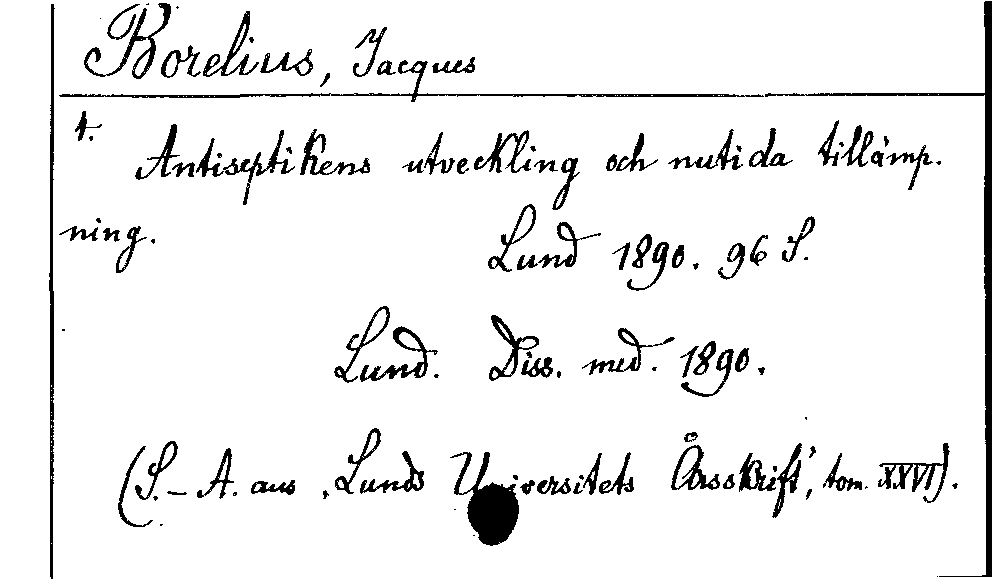 Borelius, Jacques
1.
Antiseptikens utveckling och nutida tillämp-
ning.
Lund 1890. 96 S.
Lund. Diss. med. 1890.
(S.-A. aus „Lunds Universitets Årsskrift", tom. XXVI).